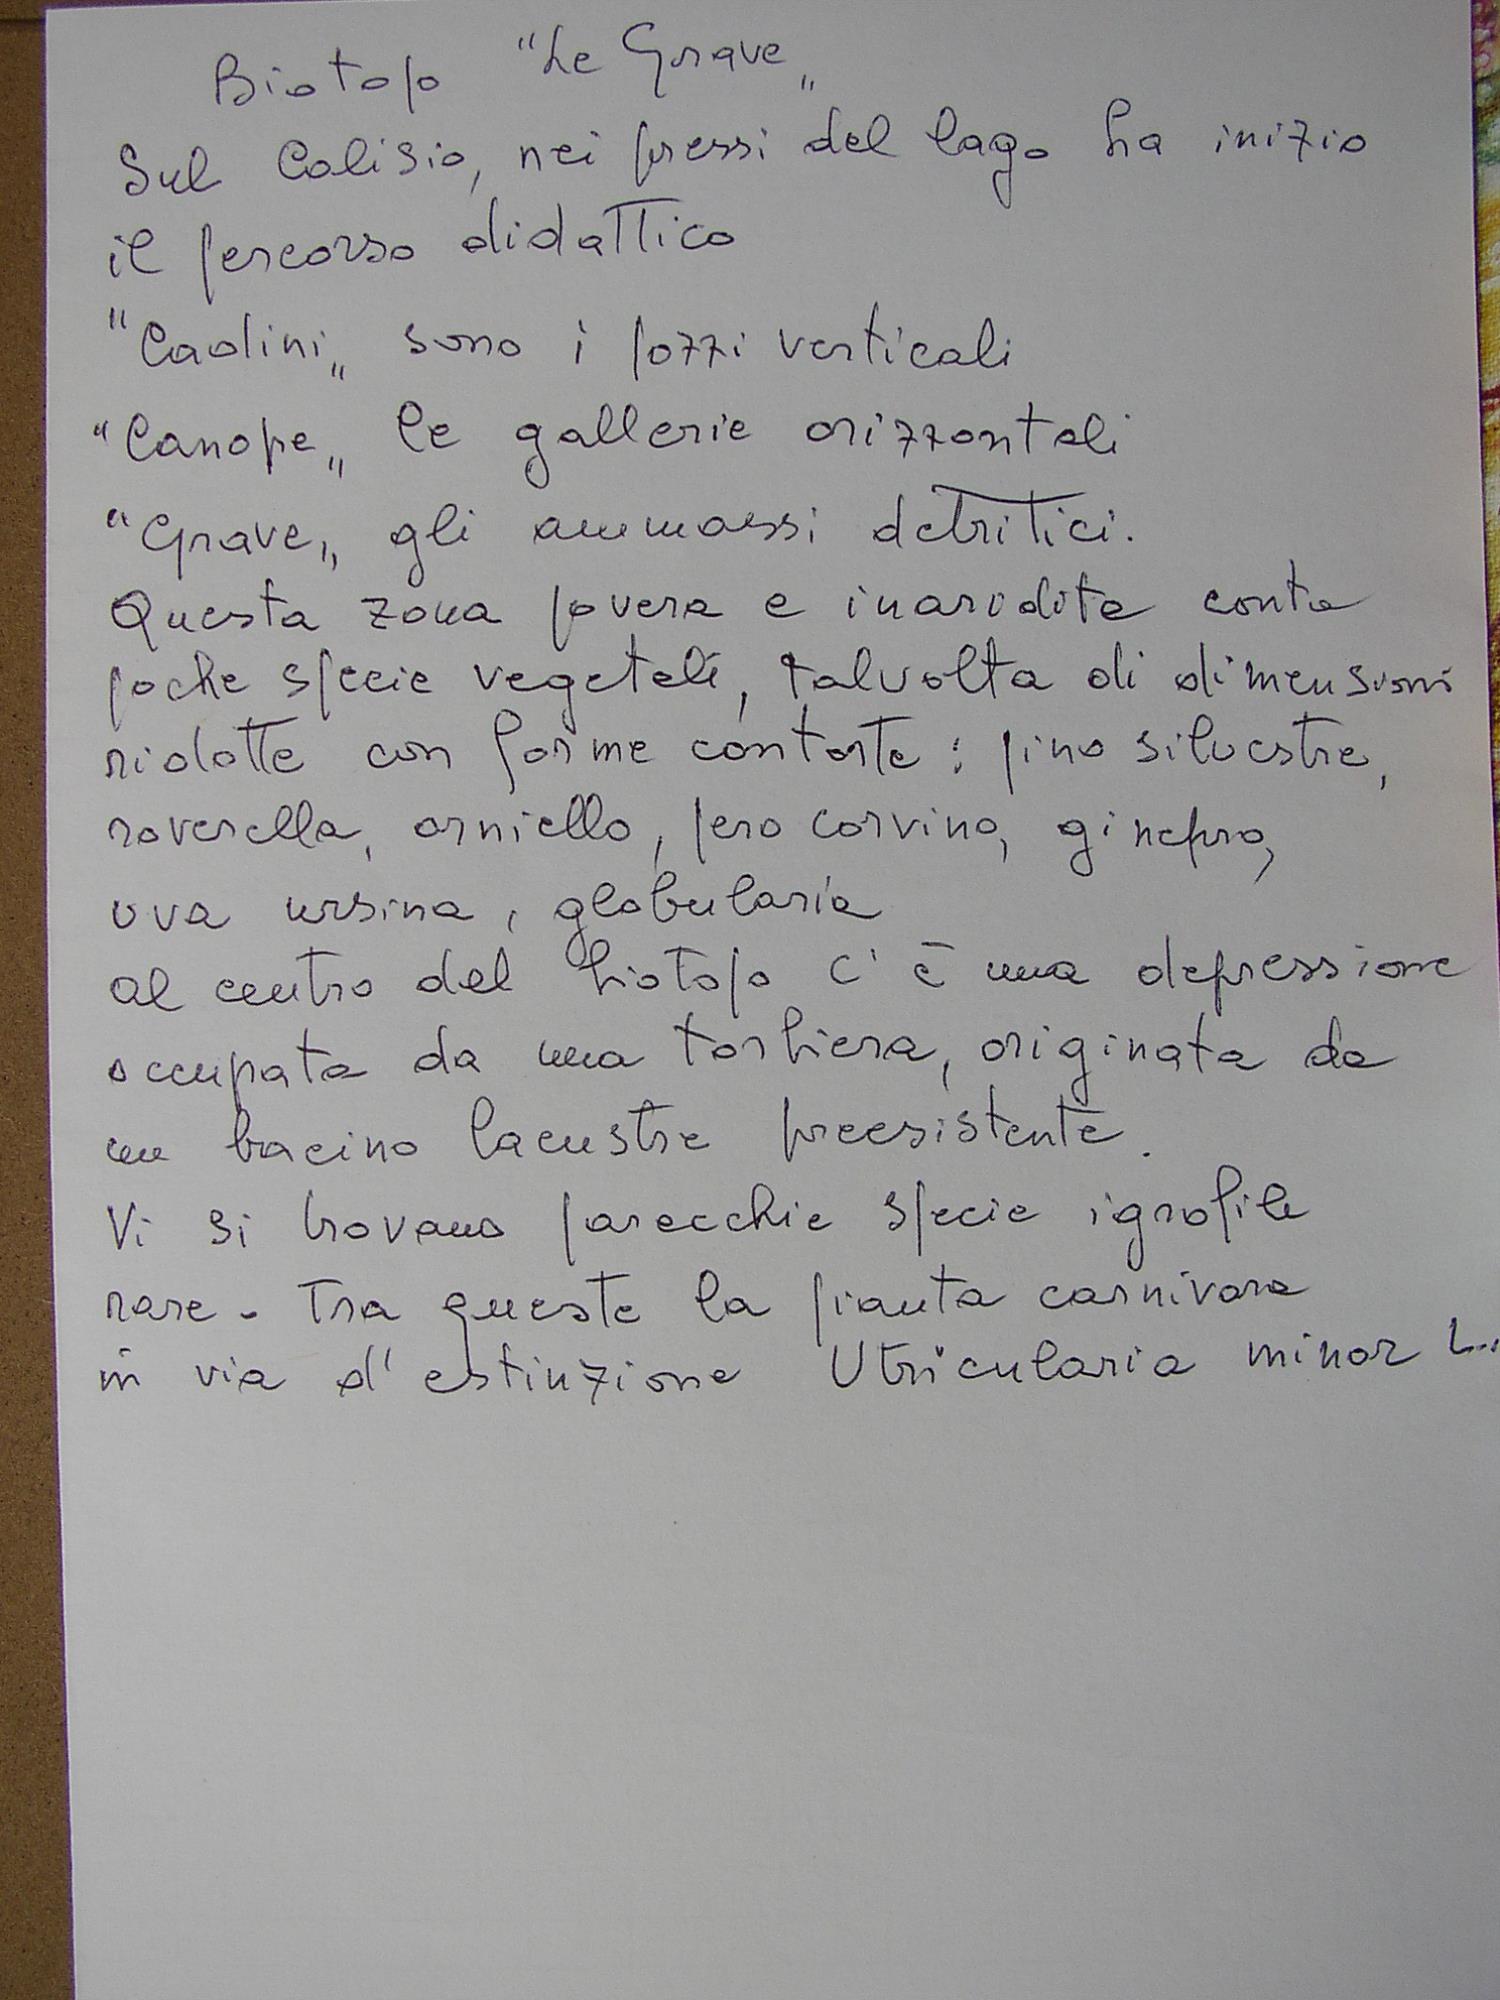 Biotopo "Le Grave"
Sul Calisio, nei pressi del lago ha inizio
il percorso didattico
"Cadini" sono i pozzi verticali
"Canope" le gallerie orizzontali
"Grave" gli ammassi detritici.
Questa zona povera e inaridita conta
poche specie vegetali, talvolta di dimensioni
ridotte con forme contorte: pino silvestre,
roverella, orniello, pero corvino, ginepro,
uva ursina, globularia
al centro del biotopo c'è una depressione
occupata da una torbiera, originata da
un bacino lacustre preesistente.
Vi si trovano parecchie specie igrofile
rare - Tra queste la pianta carnivora
in via d'estinzione Utricularia minor L..